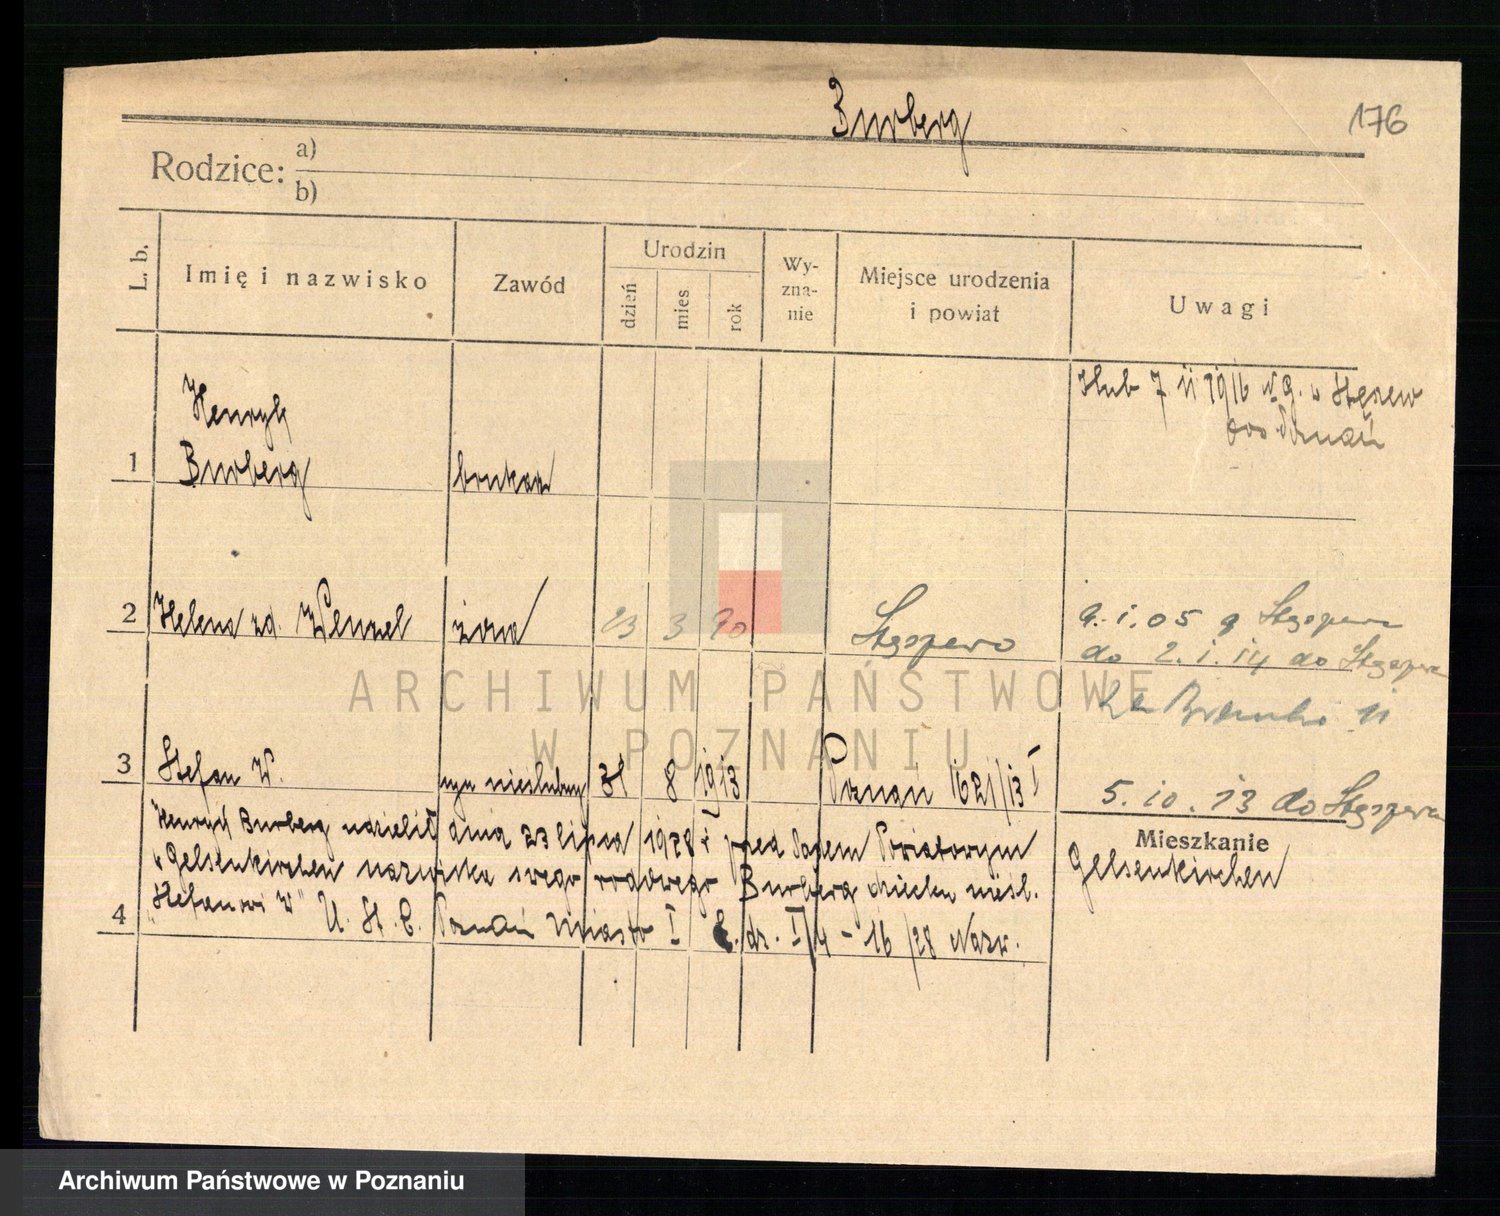 Burberg
176
Rodzice: a)
b)
L. b.
Imię i nazwisko
Zawód
Urodzin
dzień
mies
rok
Wy-
zna-
nie
Miejsce urodzenia
i powiat
Uwagi
7 11 1916
Henryk
1 Burberg
2 Helena zd. Wenzel żona 23 3 90
9. 1. 05
do 2. 1. 14 do
3 Stefan W. syn nieślubny 31 8 1913 Poznań 1621/13 I
5. 10. 13 do
Henryk Burberg udzielił dnia 23 lipca 1928 r przed Sądem Powiatowym
Mieszkanie
w Gelsenkirchen nazwiska swego rodowego Burberg dziecku nieśl.
Gelsenkirchen
4 Stefanowi W" U. St. C. Poznań Miasto I L. dz. I/4 - 16/28 Nazw.
ARCHIWUM PAŃSTWOWE
W POZNANIU
Archiwum Państwowe w Poznaniu